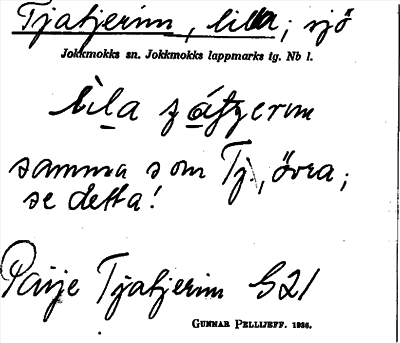 Tjatjerim, lilla; sjö
Jokkmokks sn. Jokkmokks lappmarks tg. Nb l.
samma som Tj., övra;
se detta!
Tjatjerim S21
GUNNAR PELLIJEFF. 1936.